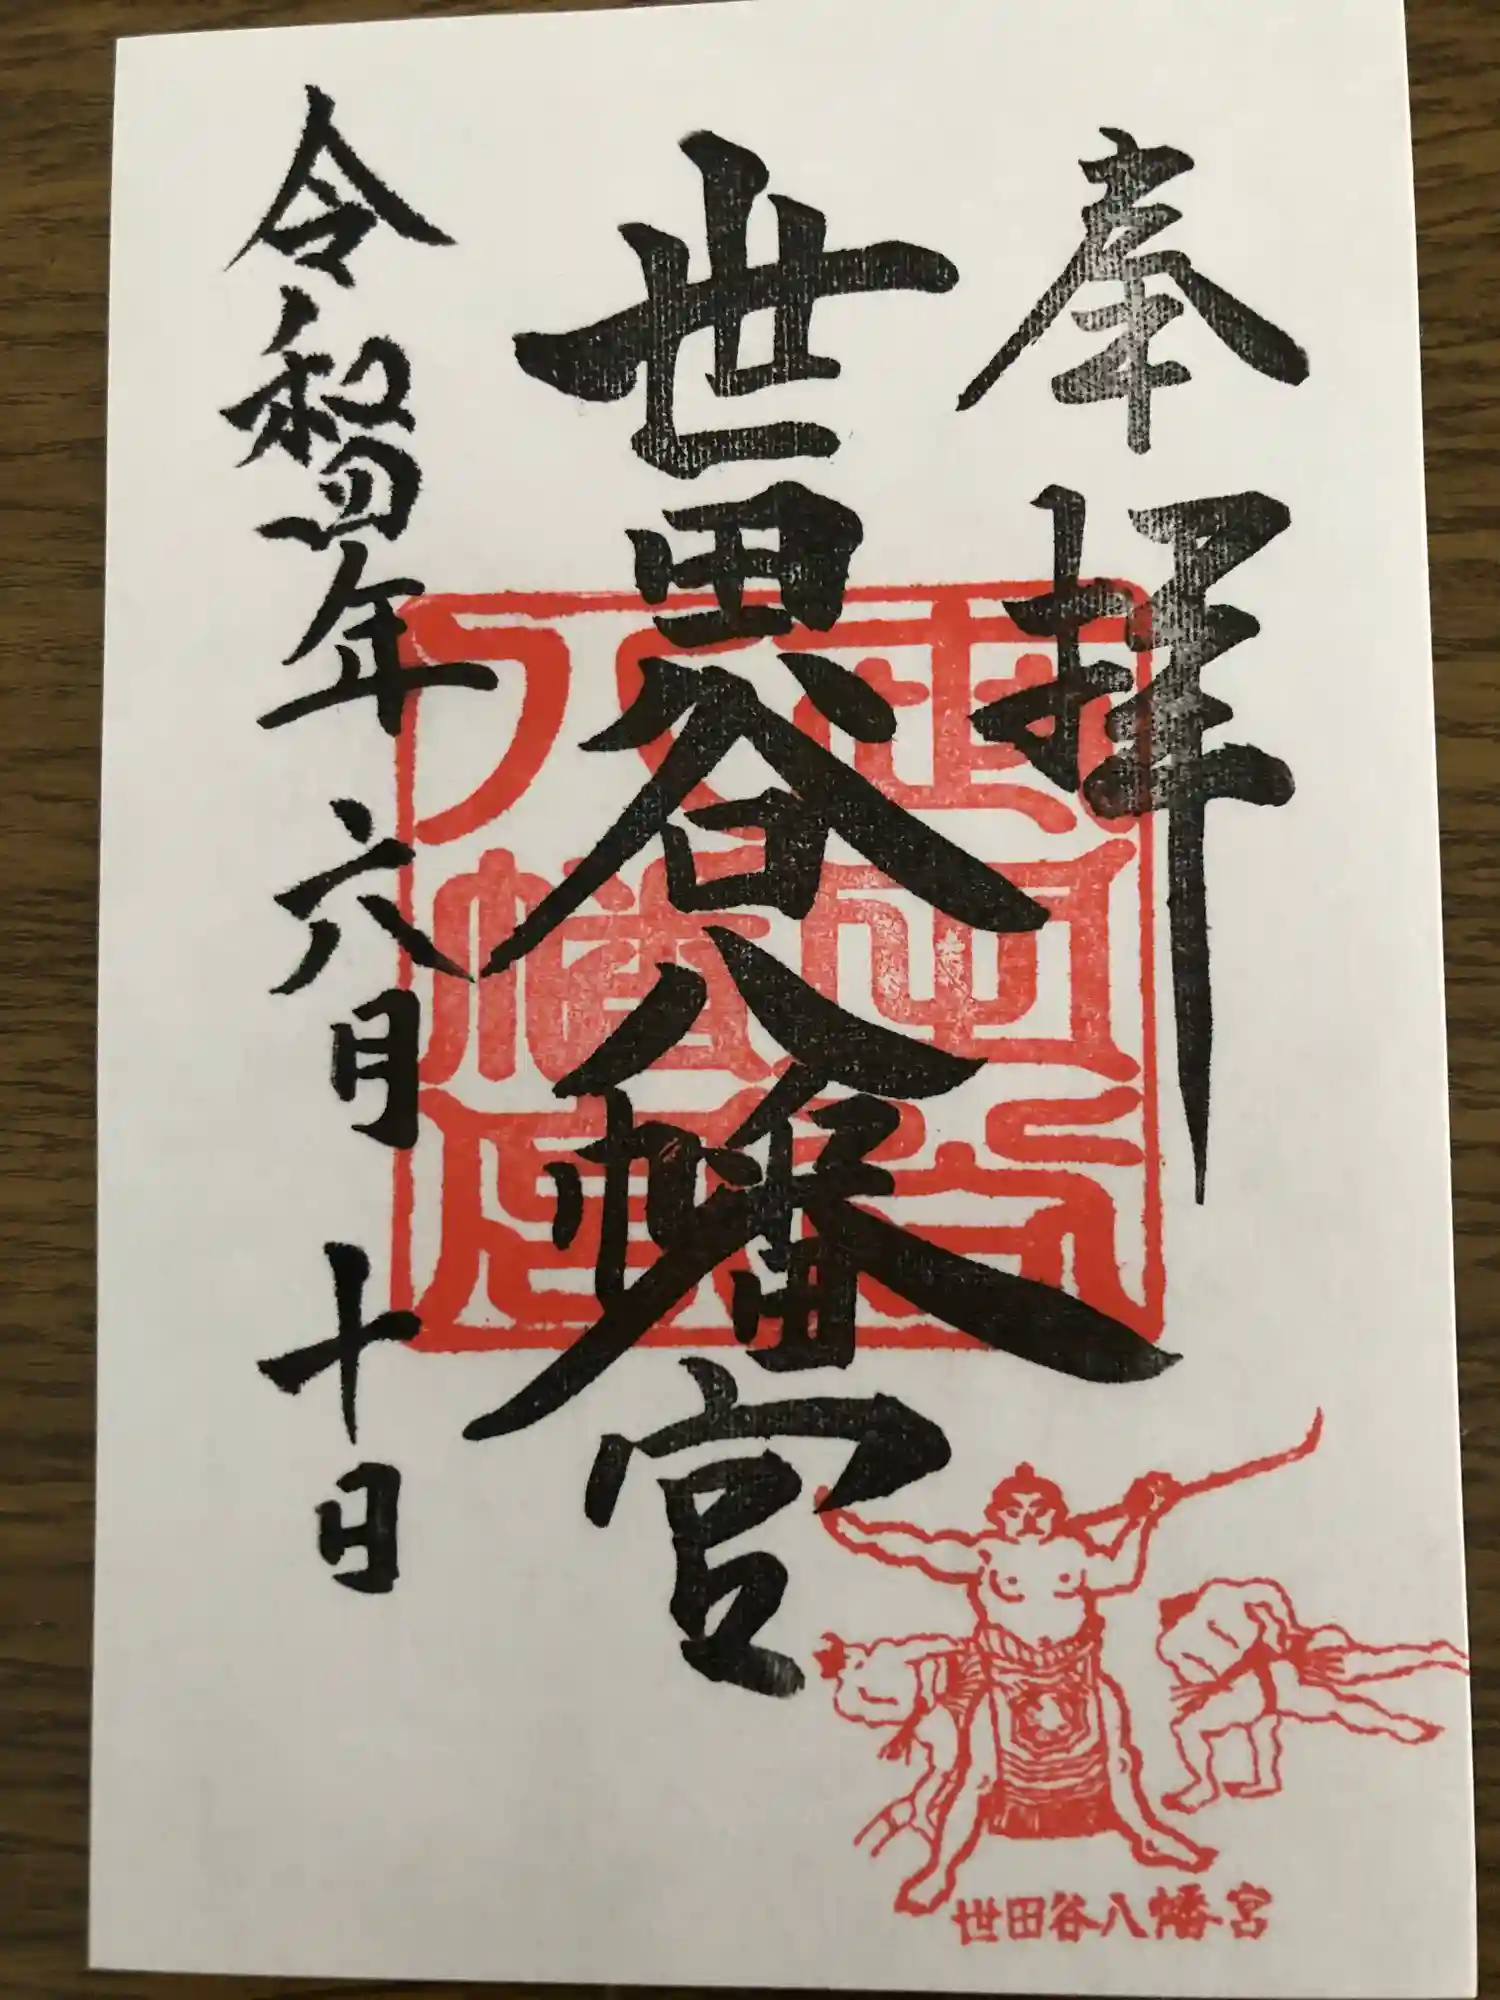 奉拝
世田谷八幡宮
令和四年六月十日
世田谷八幡宮
世田谷八幡宮